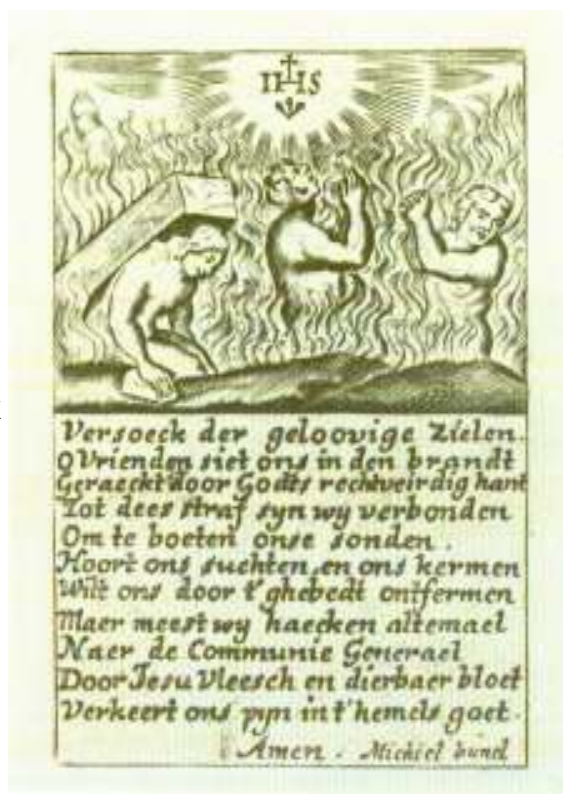 IHS
Versoeck der geloovige Zielen.
O Vrienden siet ons in den brandt
Geraeckt door Godts rechtveirdig hant
Tot dees straf syn wy verbonden
Om te boeten onse sonden.
Hoort ons suchten, en ons kermen
Wilt ons door t'ghebedt ontfermen
Maer meest wy haecken altemael
Naer de Communie Generael
Door Jesu Vleesch en dierbaer bloet
Verkeert ons pyn in t'hemels goet.
Amen. Michiel bunel